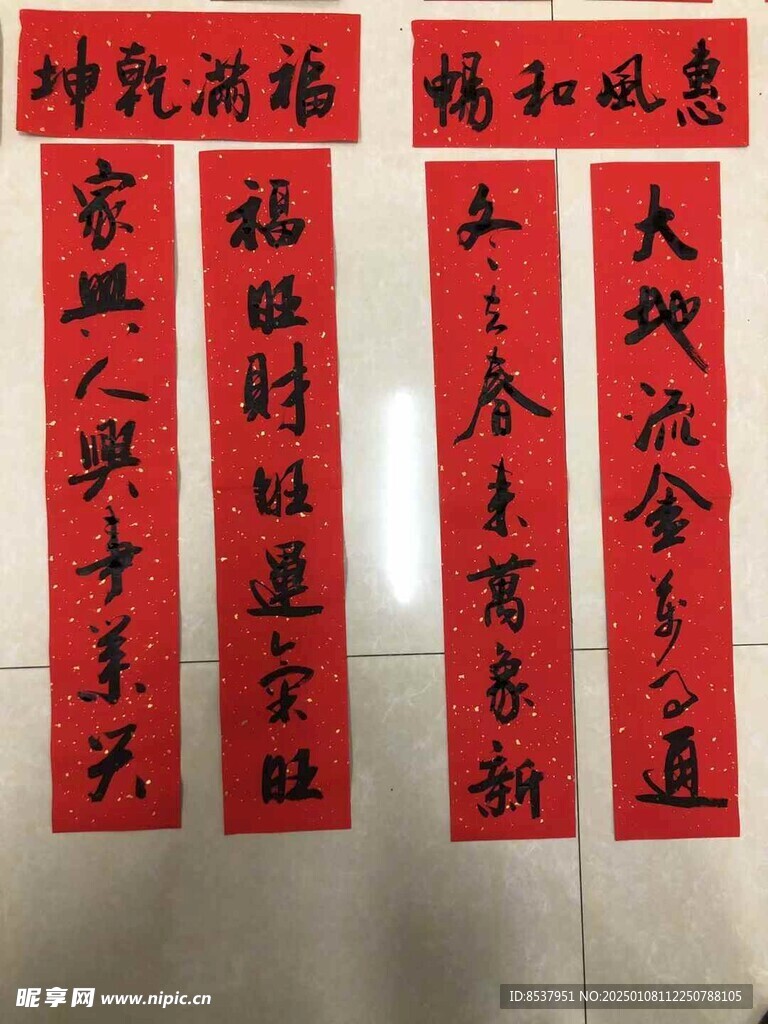 惠風和暢
大地流金萬事通
冬去春來萬象新
福滿乾坤
福旺財旺運氣旺
家興人興事業興
昵享网 www.nipic.cn
ID:8537951 NO:20250108112250788105